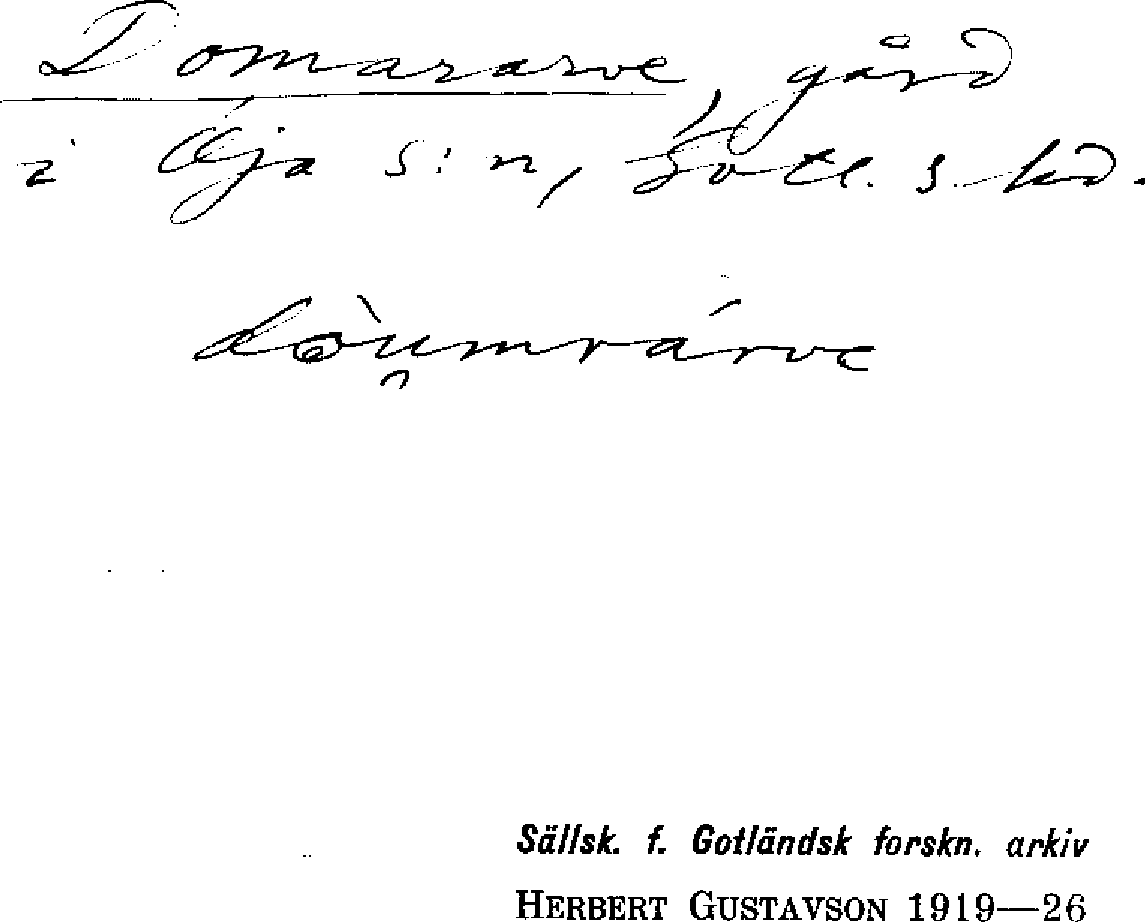 Domararve, gård
i Öja s:n, Gotl. s. hd.
dòu̯mrárve
Sällsk. f. Gotländsk forskn. arkiv
HERBERT GUSTAVSON 1919—26